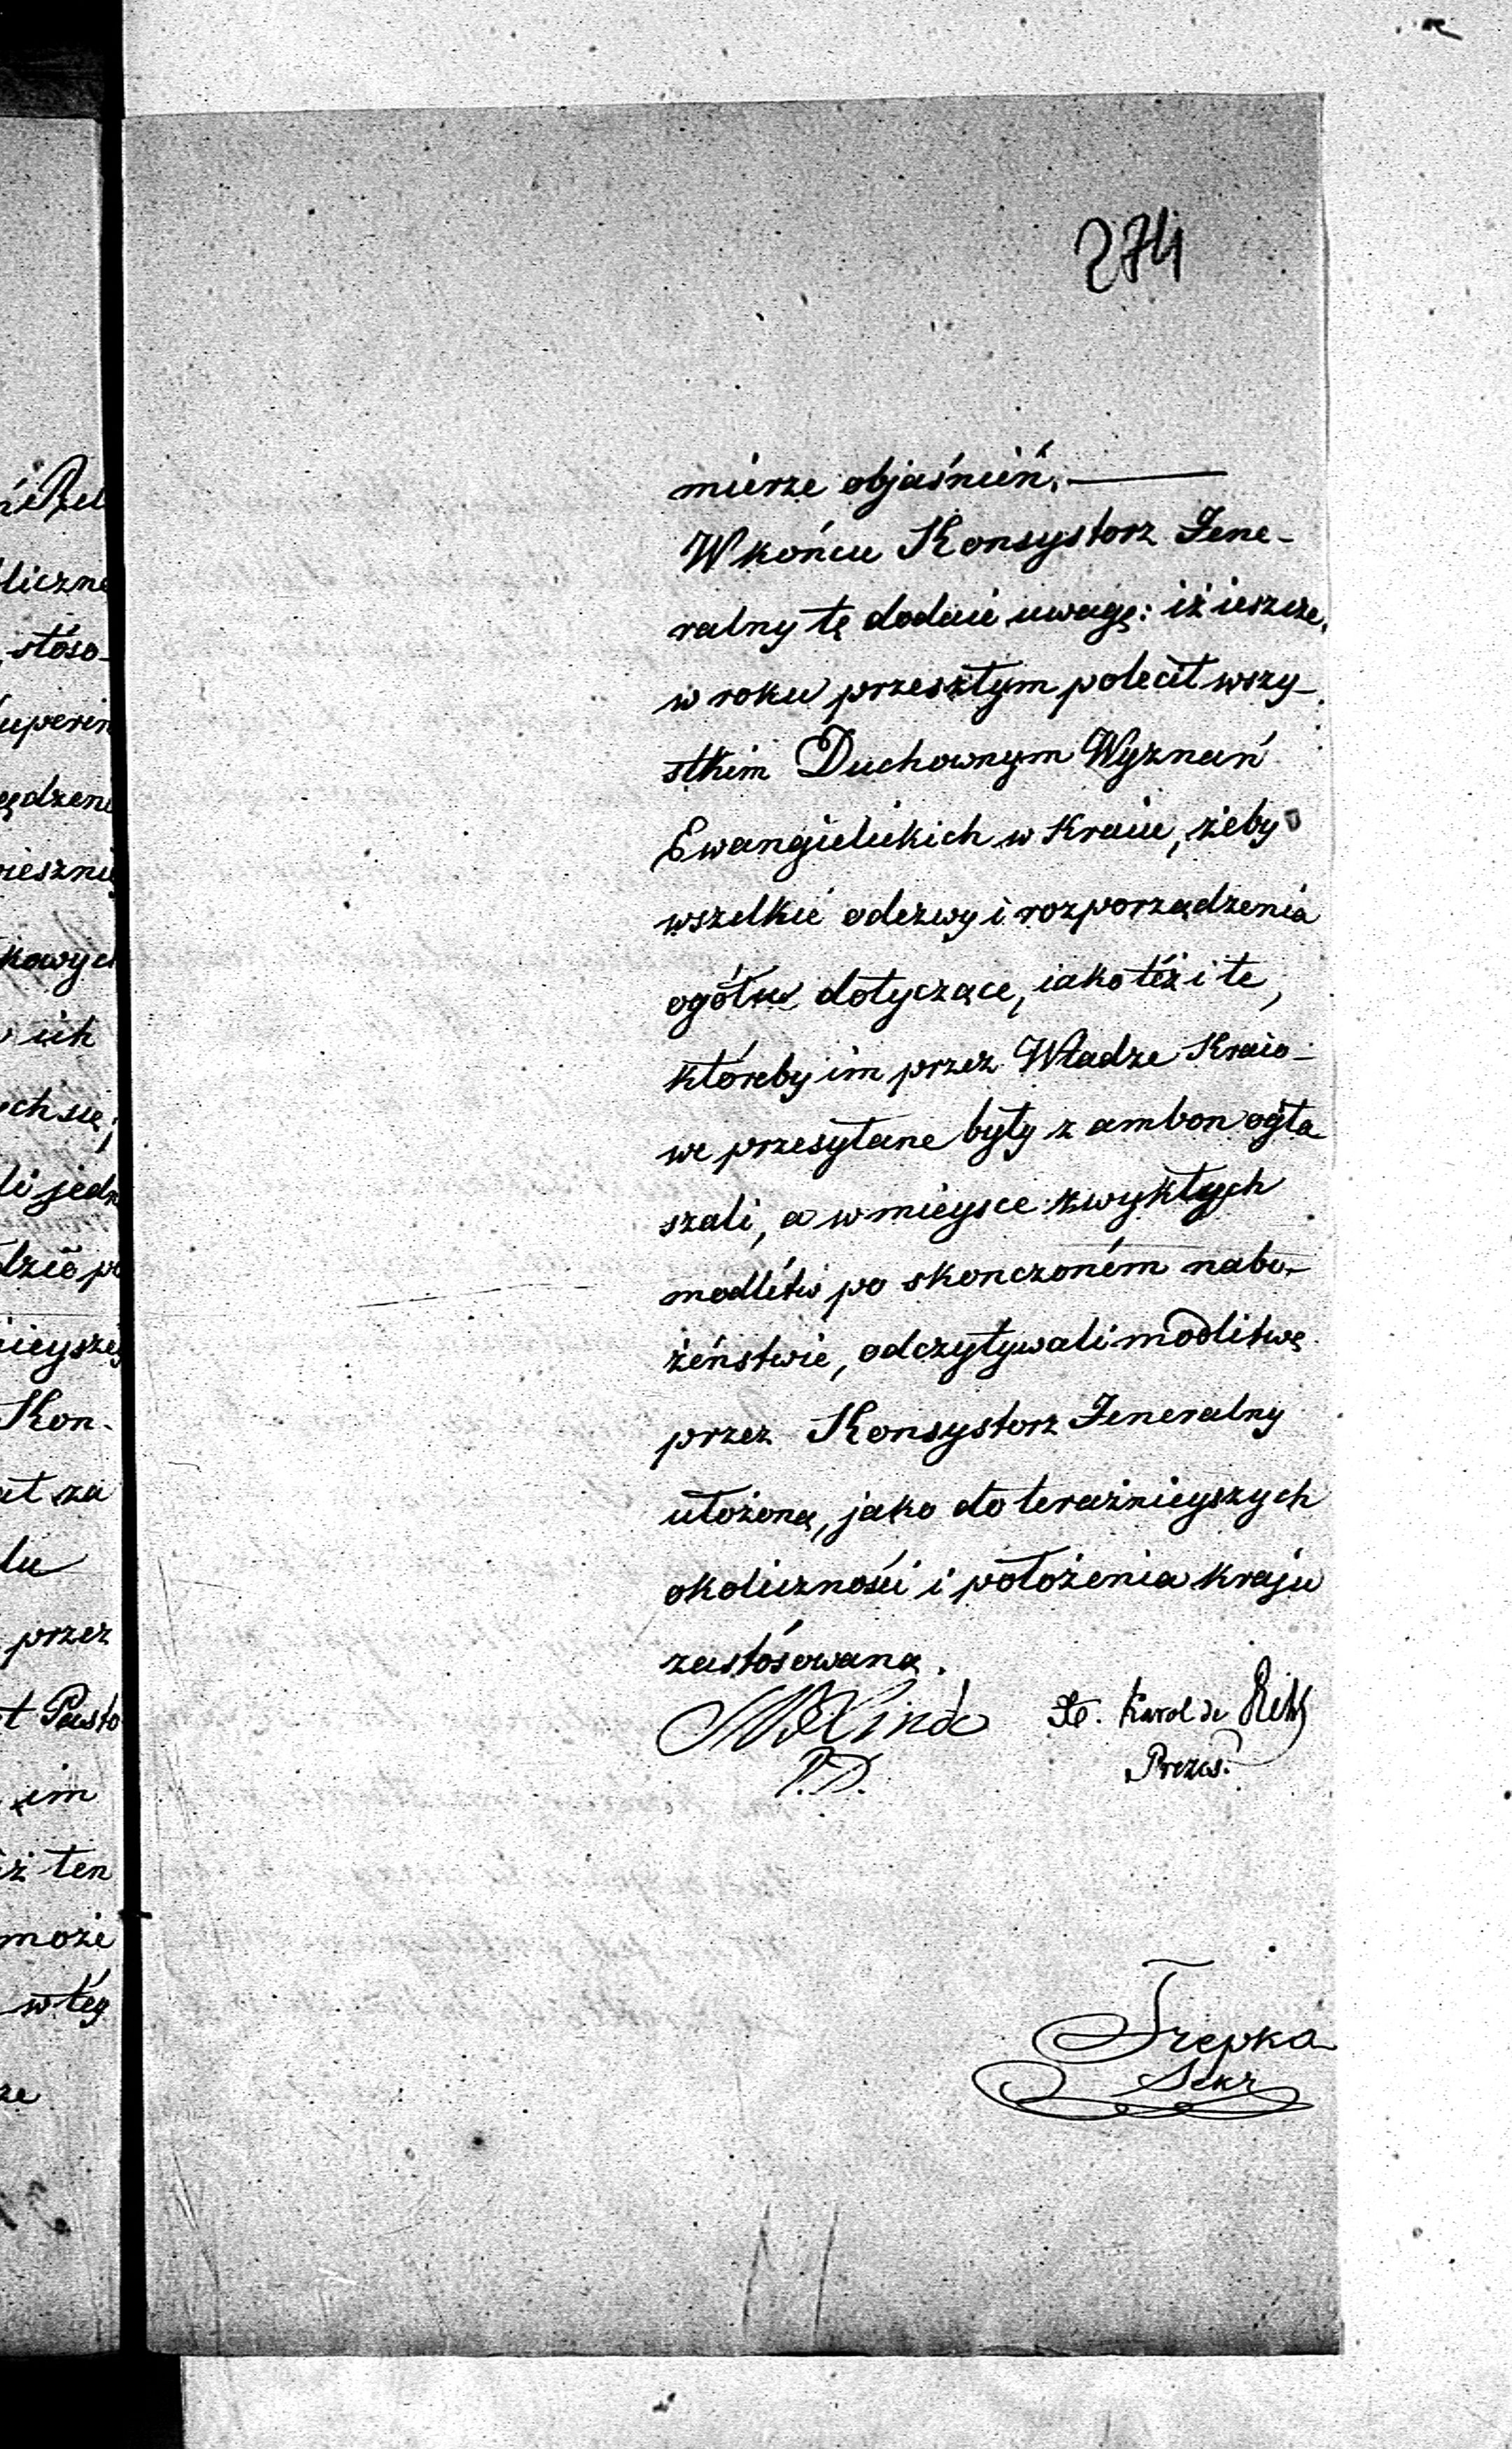 274
mierze objaśnień. —
W końcu Konsystorz Jene-
ralny tę dodaie uwagę: iż ieszcze
w roku przeszłym polecił wszy-
stkim Duchownym Wyznań
Ewangielickich w Kraiu, żeby
wszelkie odezwy i rozporządzenia
ogółu dotyczące, iako też i te,
któreby im przez Władze Kraio-
we przesyłane były z ambon ogła
szali, a w mieysce zwykłych
modlitw po skończoném nabo-
żeństwie, odczytywali modlitwę
przez Konsystorz Jeneralny
ułożoną, jako do teraźnieyszych
okoliczności i położenia kraju
zastósowaną.
Linde X. Karol de
P.D. Prezes.
Trepka
Sekr
liczne
stóso-
uperin
kowych
w ich
ch się;
li jedn
ieyszey
Kon-
przez
Pasto
im
iż ten
może
w téy